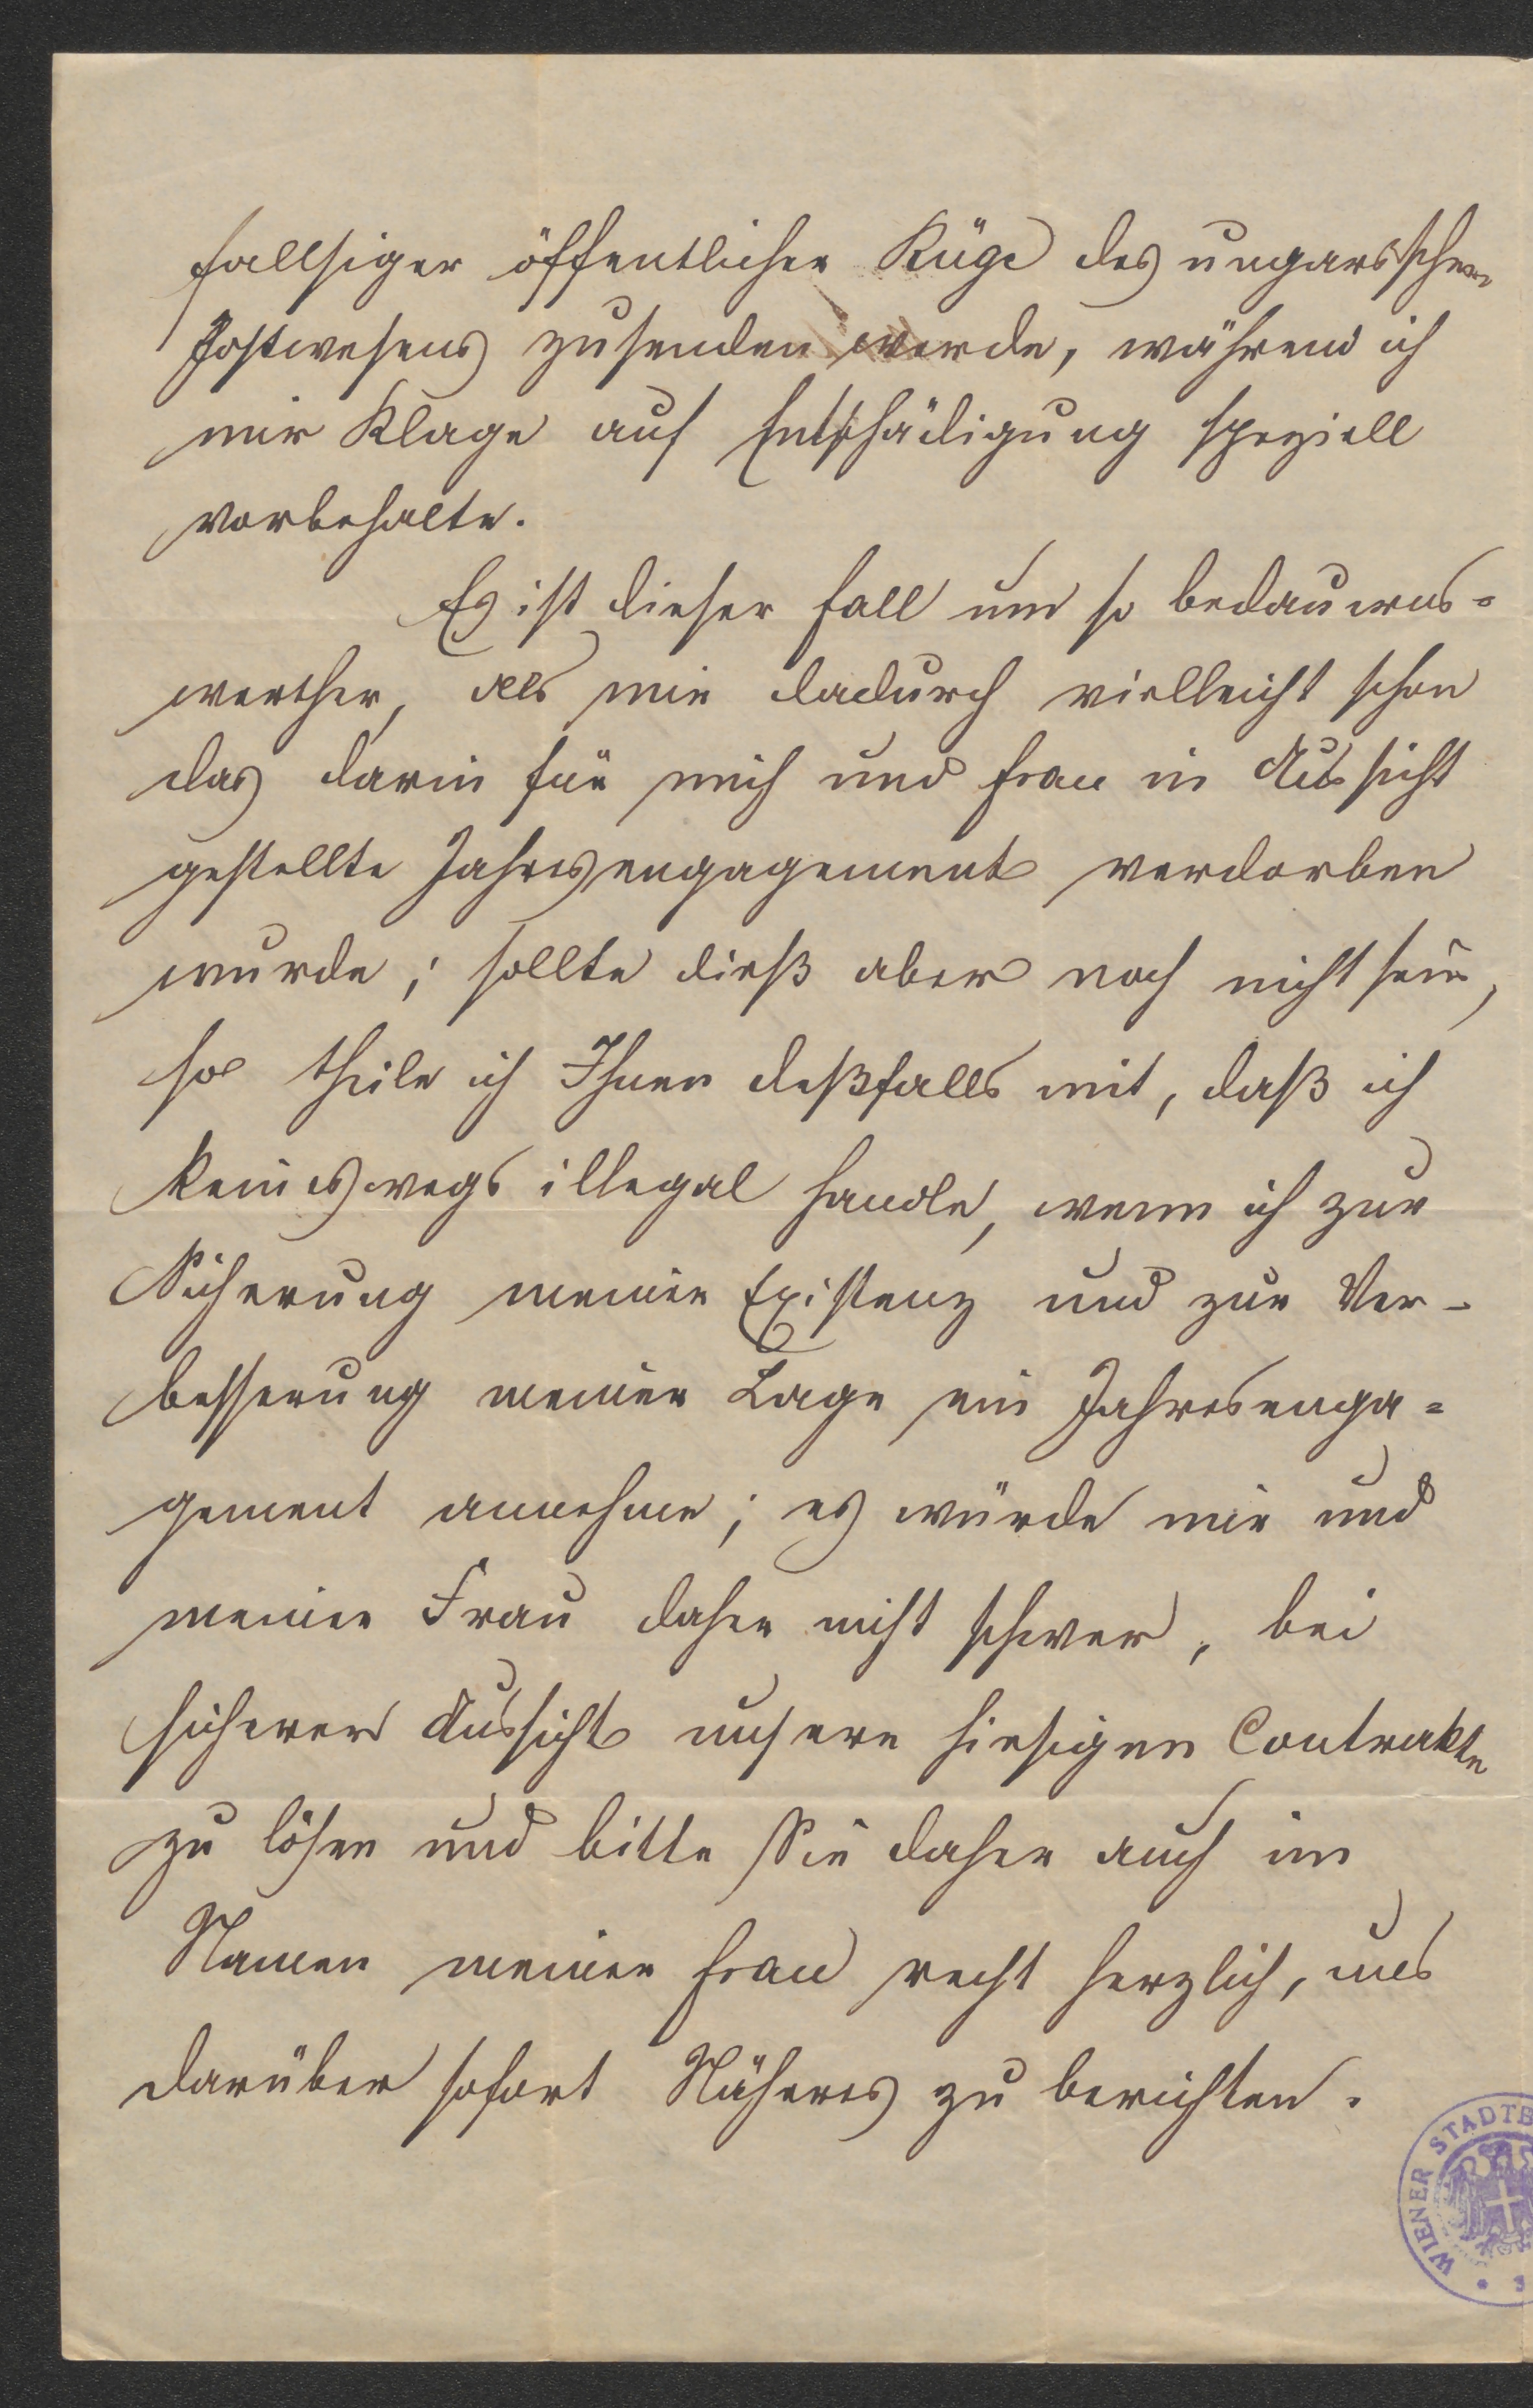 fallsiger öffentlicher Rüge des ungarischen
Postwesens zusenden werde, während ich
mir Klage auf Entschädigung speziell
vorbehalte.
Es ist dieser Fall um so bedauerns=
werther, als mir dadurch vielleicht schon
das darin für mich und Frau in Aussicht
gestellte Jahresengagement verdorben
wurde; sollte dieß aber noch nicht sein,
so theile ich Ihnen deßfalls mit, daß ich
keineswegs illegal handle, wenn ich zur
Sicherung meiner Existenz und zur Ver-
besserung meiner Lage ein Jahresenga=
gement annehme; es würde mir und
meiner Frau daher nicht schwer, bei
sicherer Aussicht unsere hiesigen Contrakte
zu lösen und bitte Sie daher auch im
Namen meiner Frau recht herzlich, uns
darüber sofort Näheres zu berichten.
WIENER STADTB